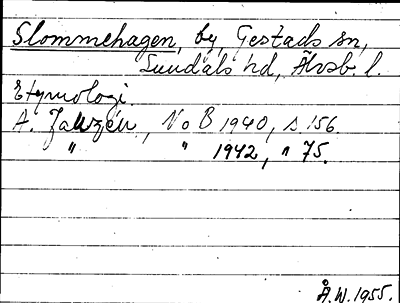 Slommehagen, by, Gestads sn,
Sundals hd, Älvsb. l.
Etymologi.
A. Janzén, NoB 1940, s 156.
" " 1942, " 75.
Å.W. 1955.